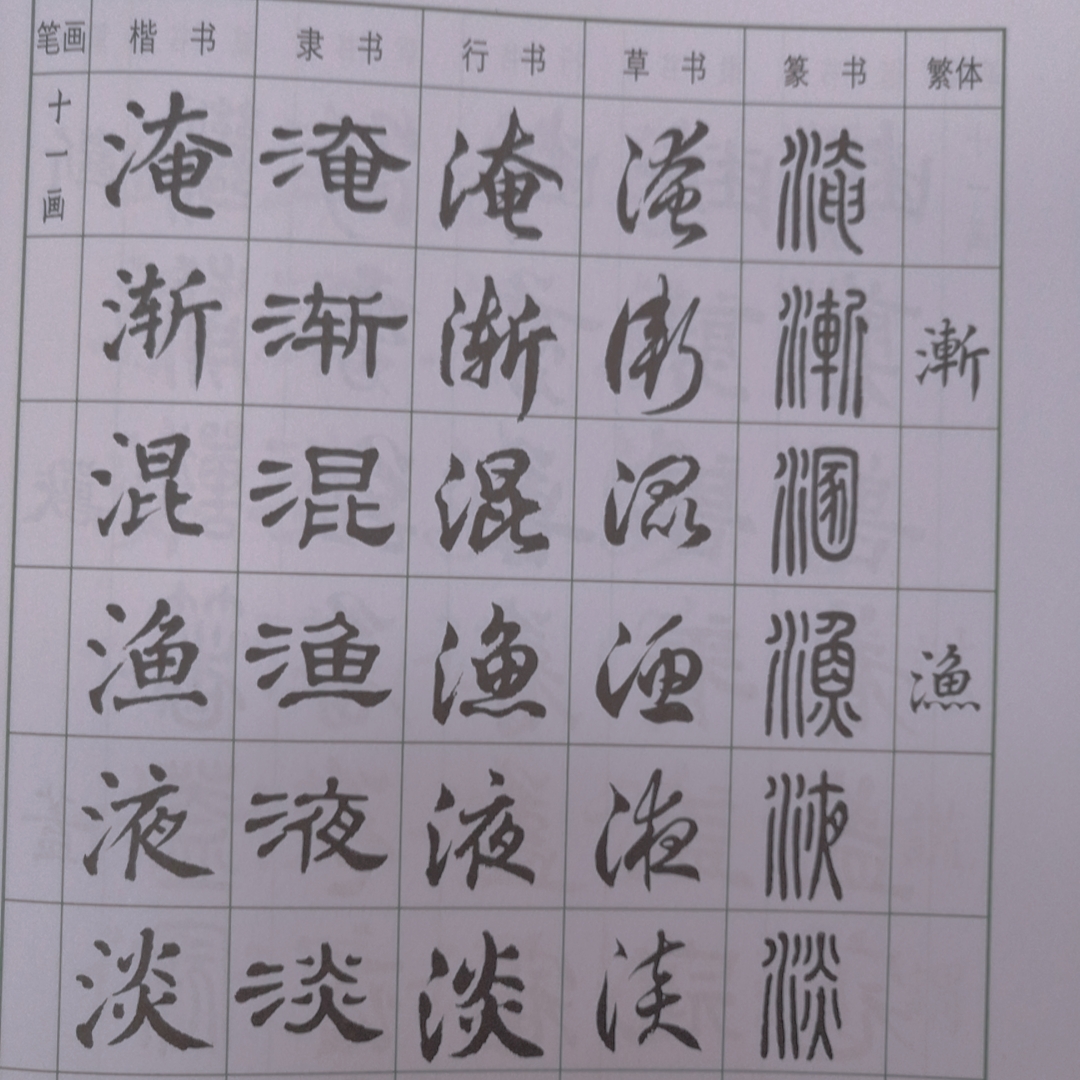 笔画 楷书 隶书 行书 草书 篆书 繁体
十一画 淹 淹 淹 淹 淹
渐 渐 渐 渐 漸 漸
混 混 混 混 混
渔 渔 渔 渔 漁 漁
液 液 液 液 液
淡 淡 淡 淡 淡